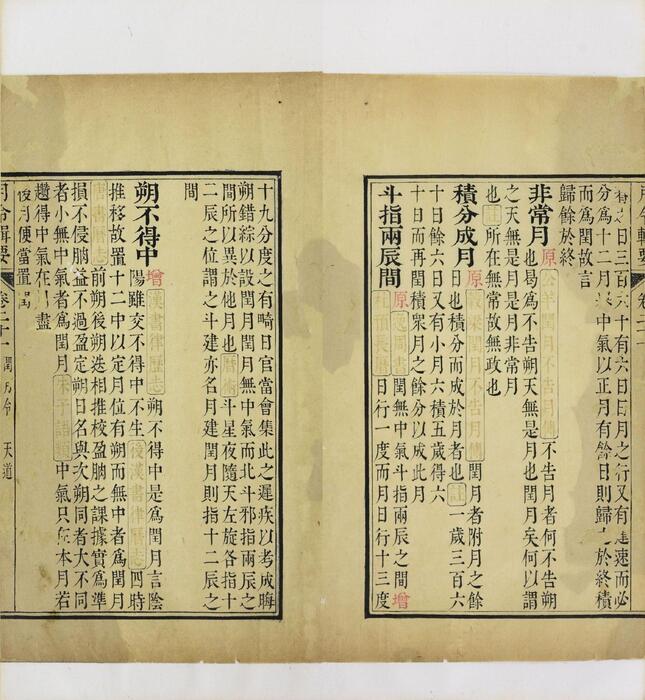 月令輯要 卷二十一
朞之日三百六十有六日日月之行又有遲速而必
分爲十二月以中氣以正月有餘日則歸之於終積
而爲閏故言
歸餘於終
非常月 原 公羊閏月不告月傳 不告月者何不告朔
也曷爲不告朔天無是月也閏月矣何以謂
之天無是月是月非常月
也 註 所在無常故無政也
積分成月 原 穀梁閏月不告月傳 閏月者附月之餘
日也積分而成於月者也 註 一歲三百六
十日餘六日又有小月六積五歲得六
十日而再閏積衆月之餘分以成此月
斗指兩辰間 原 逸周書 閏無中氣斗指兩辰之間 增
日行一度而月日行十三度
十九分度之有畸日官當會集此之遲疾以考成晦
朔錯綜以設閏月閏月無中氣而北斗邪指兩辰之
間所以異於他月也 曆術 斗星夜隨天左旋各指十
二辰之位謂之斗建亦名月建閏月則指十二辰之
間
朔不得中 增 漢書律歷志 朔不得中是爲閏月言陰
陽雖交不得中不生 後漢書律歷志 四時
推移故置十二中以定月位有朔而無中者爲閏月
晉書律歷志 前朔後朔迭相推校盈朒之課據實爲準
損不侵朒益不過盈定朔日名與次朔同者大不同
者小無中氣者爲閏月 朱子語類 中氣只在本月若
趲得中氣在月盡
後月便當置閏
月令輯要 卷二十一 閏月令 天道